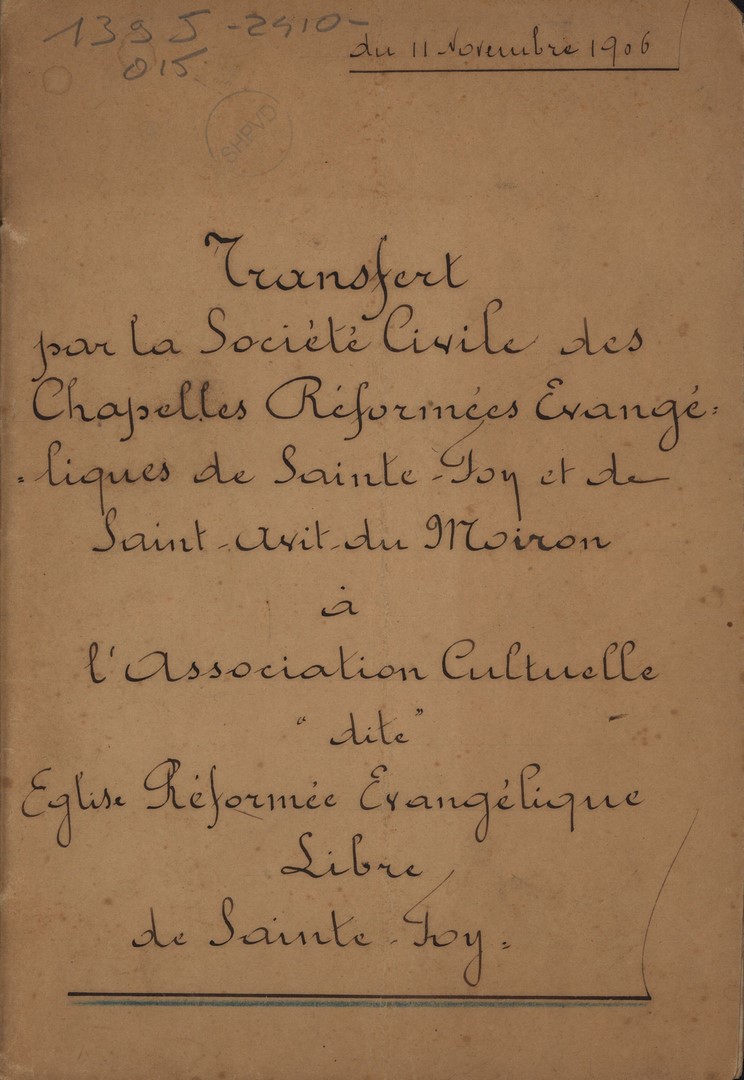 1395-2410-
015
du 11 Novembre 1906
SHPVD
Transfert
par la Société Civile des
Chapelles Réformées Evangé=
=liques de Sainte-Foy et de
Saint-Avit-du Moiron
à
l'Association Cultuelle
"dite"
Eglise Réformée Evangélique
Libre
de Sainte-Foy.